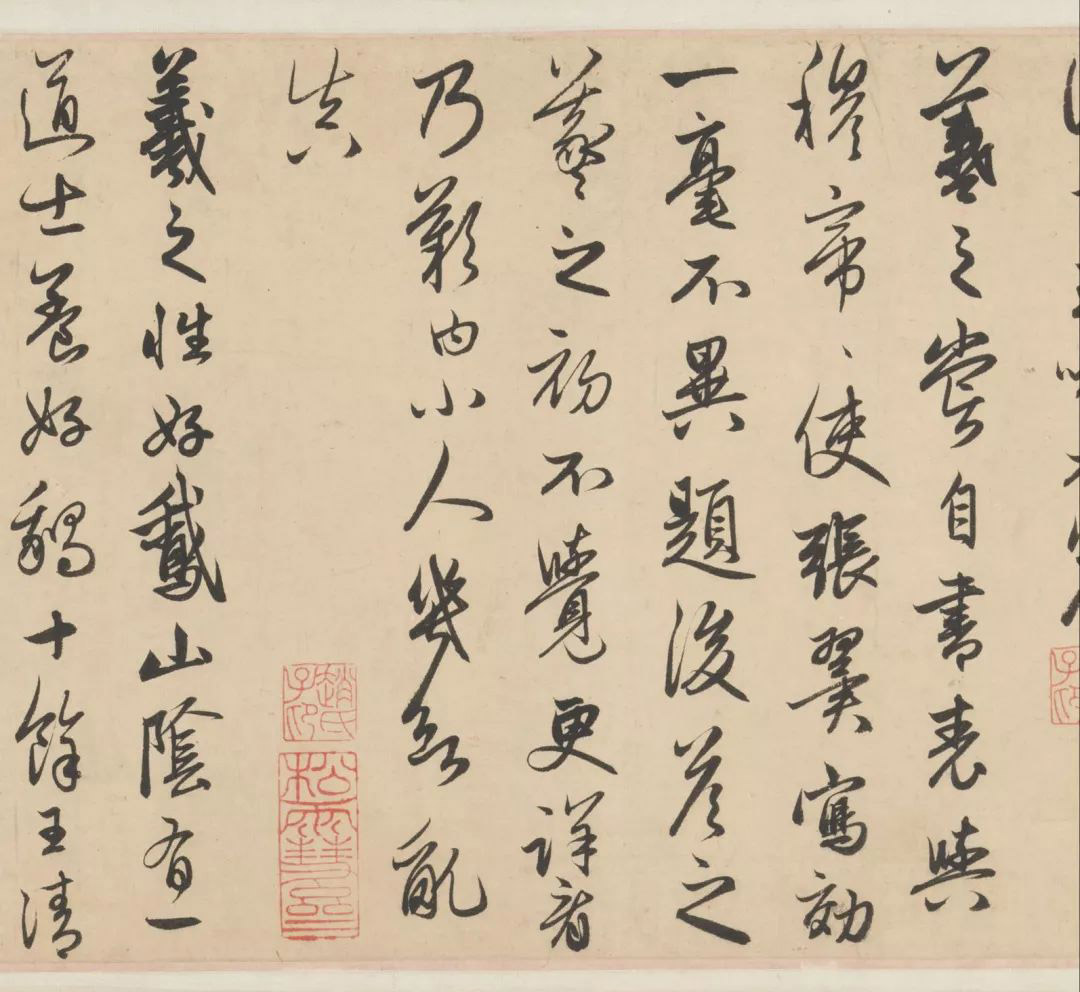 羲之嘗自書表與
穆帝〻使張翼寫効
一毫不異題後答之
羲之初不覺更詳看
乃歎曰小人幾欲亂
真
趙氏子昂
羲之性好鵞山陰有一
道士養好鵝十餘王清